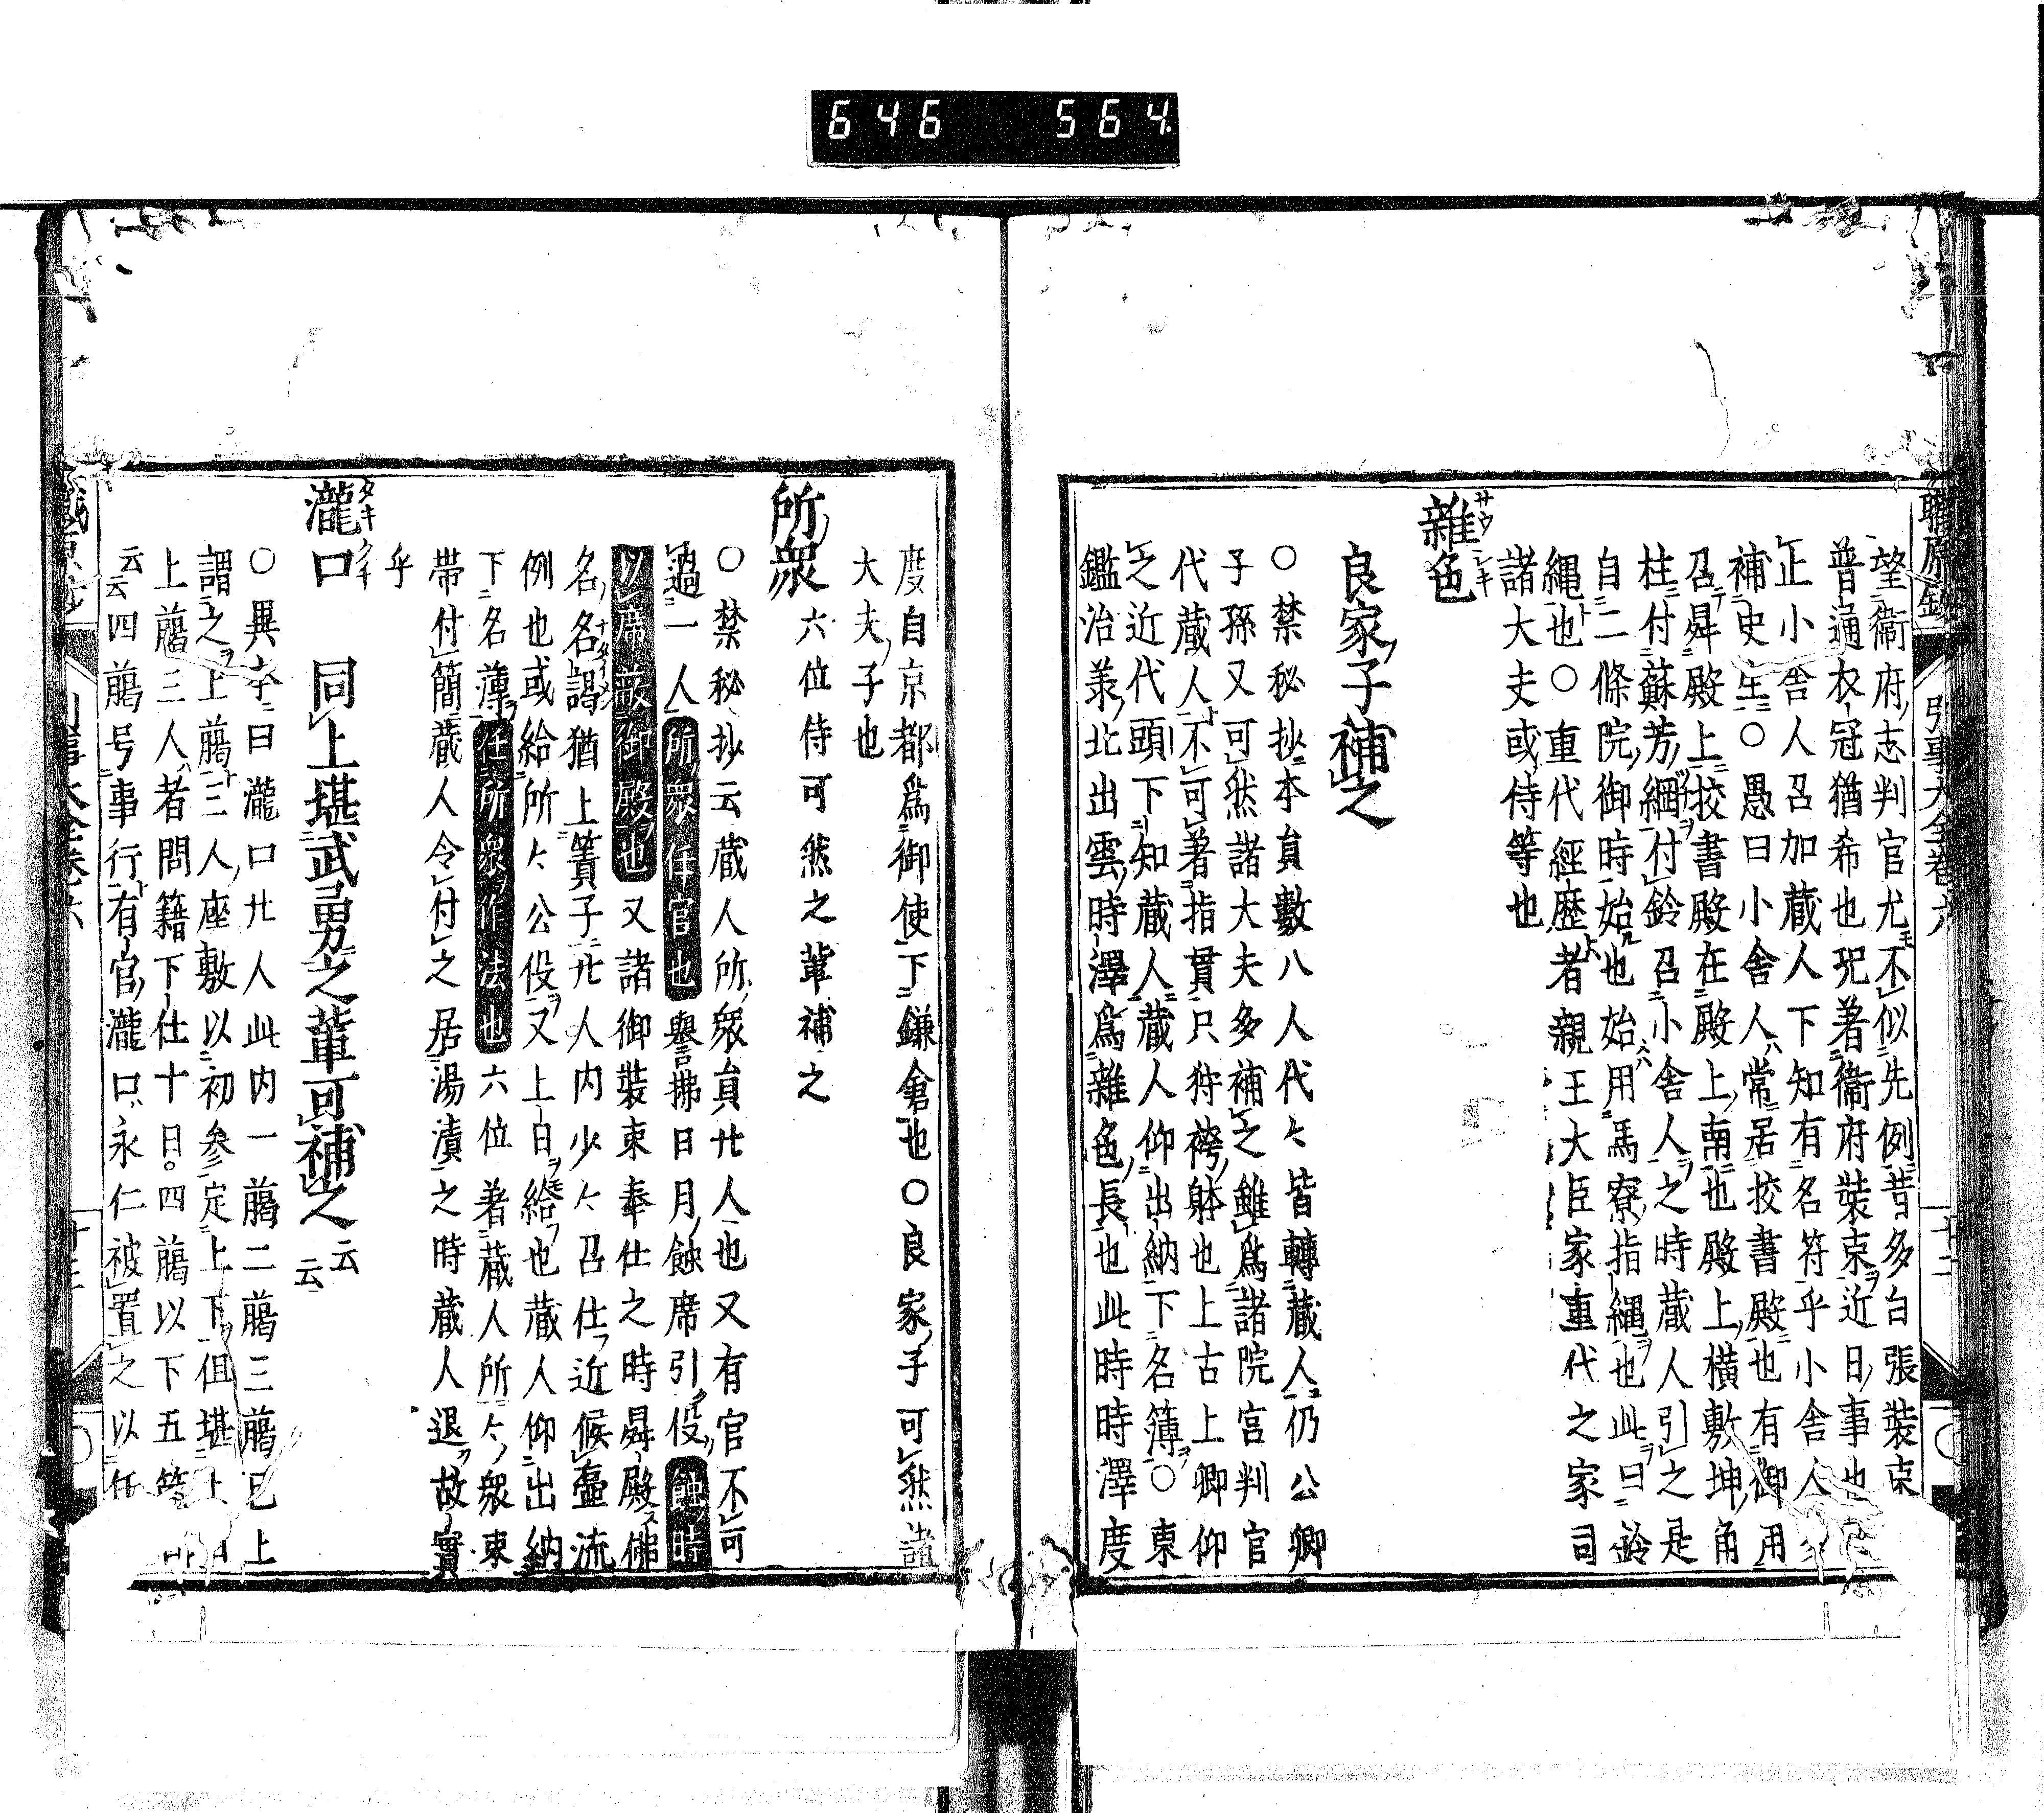 646 564.
職原鈔 引事大全卷六 十二
望衞府志判官尤不似先例昔多白張裝束
普通衣冠猶希也況著衞府裝束近日事也
正小舍人召加蔵人下知有名符乎小舍人
補史生○愚曰小舍人常居挍書殿也有御用
召舜殿上挍書殿在殿上南也殿上横敷坤角
柱付蘇芳綱付鈴召小舍人之時蔵人引之是
自二條院御時始也始用馬寮指縄也此曰鈴
縄也○重代經歴者親王大臣家重代之家司
諸大夫或侍等也
雜色サウシキ
良家子補之
○禁秘抄本貟數八人代々皆轉蔵人仍公卿
子孫又可然諸大夫多補之雖爲諸院宮判官
代蔵人不可著指貫只狩袴躰也上古上卿仰
之近代頭下知蔵人蔵人仰出納下名簿○東
鑑治羕北出雲時澤爲雜色長也此時時澤度
度自京都爲御使下鎌倉也○良家子可然諸
大夫子也
所衆 六位侍可然之輩補之
○禁秘抄云蔵人所衆貟廿人也又有官不可
過一人所衆任官也譽拂日月蝕席引役蝕時
以席蔽御殿也又諸御裝束奉仕之時舜殿佛
名名謁猶上簀子廿人内少々召仕近候壷流
例也或給所々公役又上日給也蔵人仰出納
下名薄任所衆作法也六位著蔵人所々衆束
帯付簡蔵人令付之居湯漬之時蔵人退故實
乎
瀧口タキクチ 同上堪武勇之輩可補之云云
○異本曰瀧口廿人此内一﨟二﨟三﨟已上
謂之上﨟三人座敷以初参定上下但堪上
上﨟三人者問籍下仕十日四﨟以下五
云云四﨟号事行有官瀧口永仁被置之以任